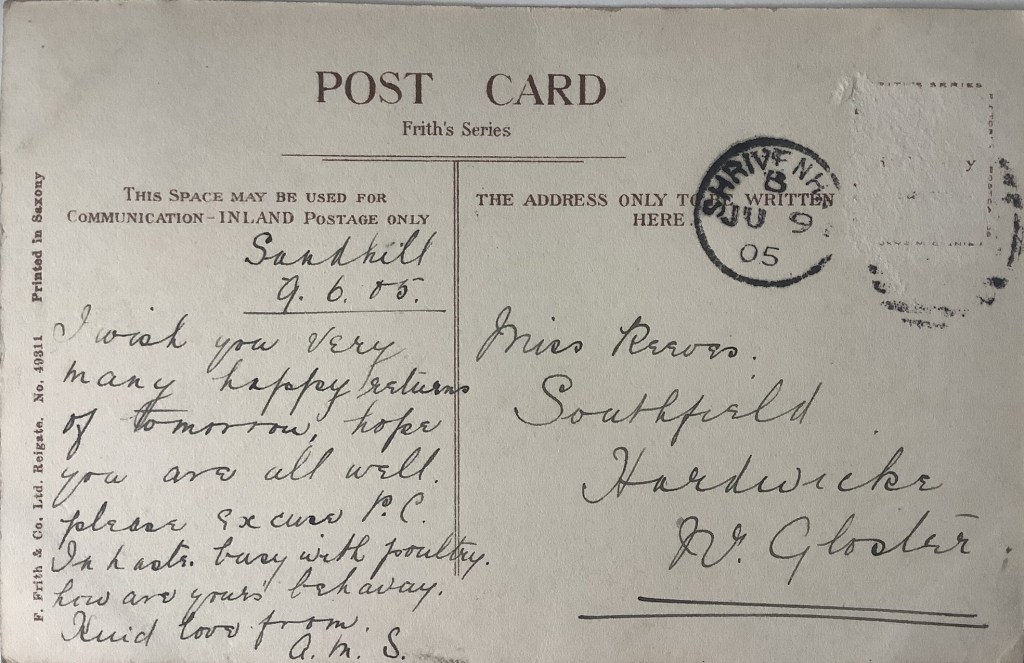 POST CARD
Frith's Series
THIS SPACE MAY BE USED FOR
COMMUNICATION-INLAND POSTAGE ONLY
THE ADDRESS ONLY TO BE WRITTEN
HERE.
SHRIVENH
B
JU 9
05
F. Frith & Co. Ltd. Reigate. No. 49311 Printed in Saxony
Sandhill
9. 6. 05.
I wish you very
many happy returns
of tomorrow, hope
you are all well.
please excuse P.C.
In haste. busy with poultry.
how are yours behaving.
Kind love from.
A. M. S.
Miss Reeves.
Southfield
Hardwicke
Nr. Gloster.
SERIES